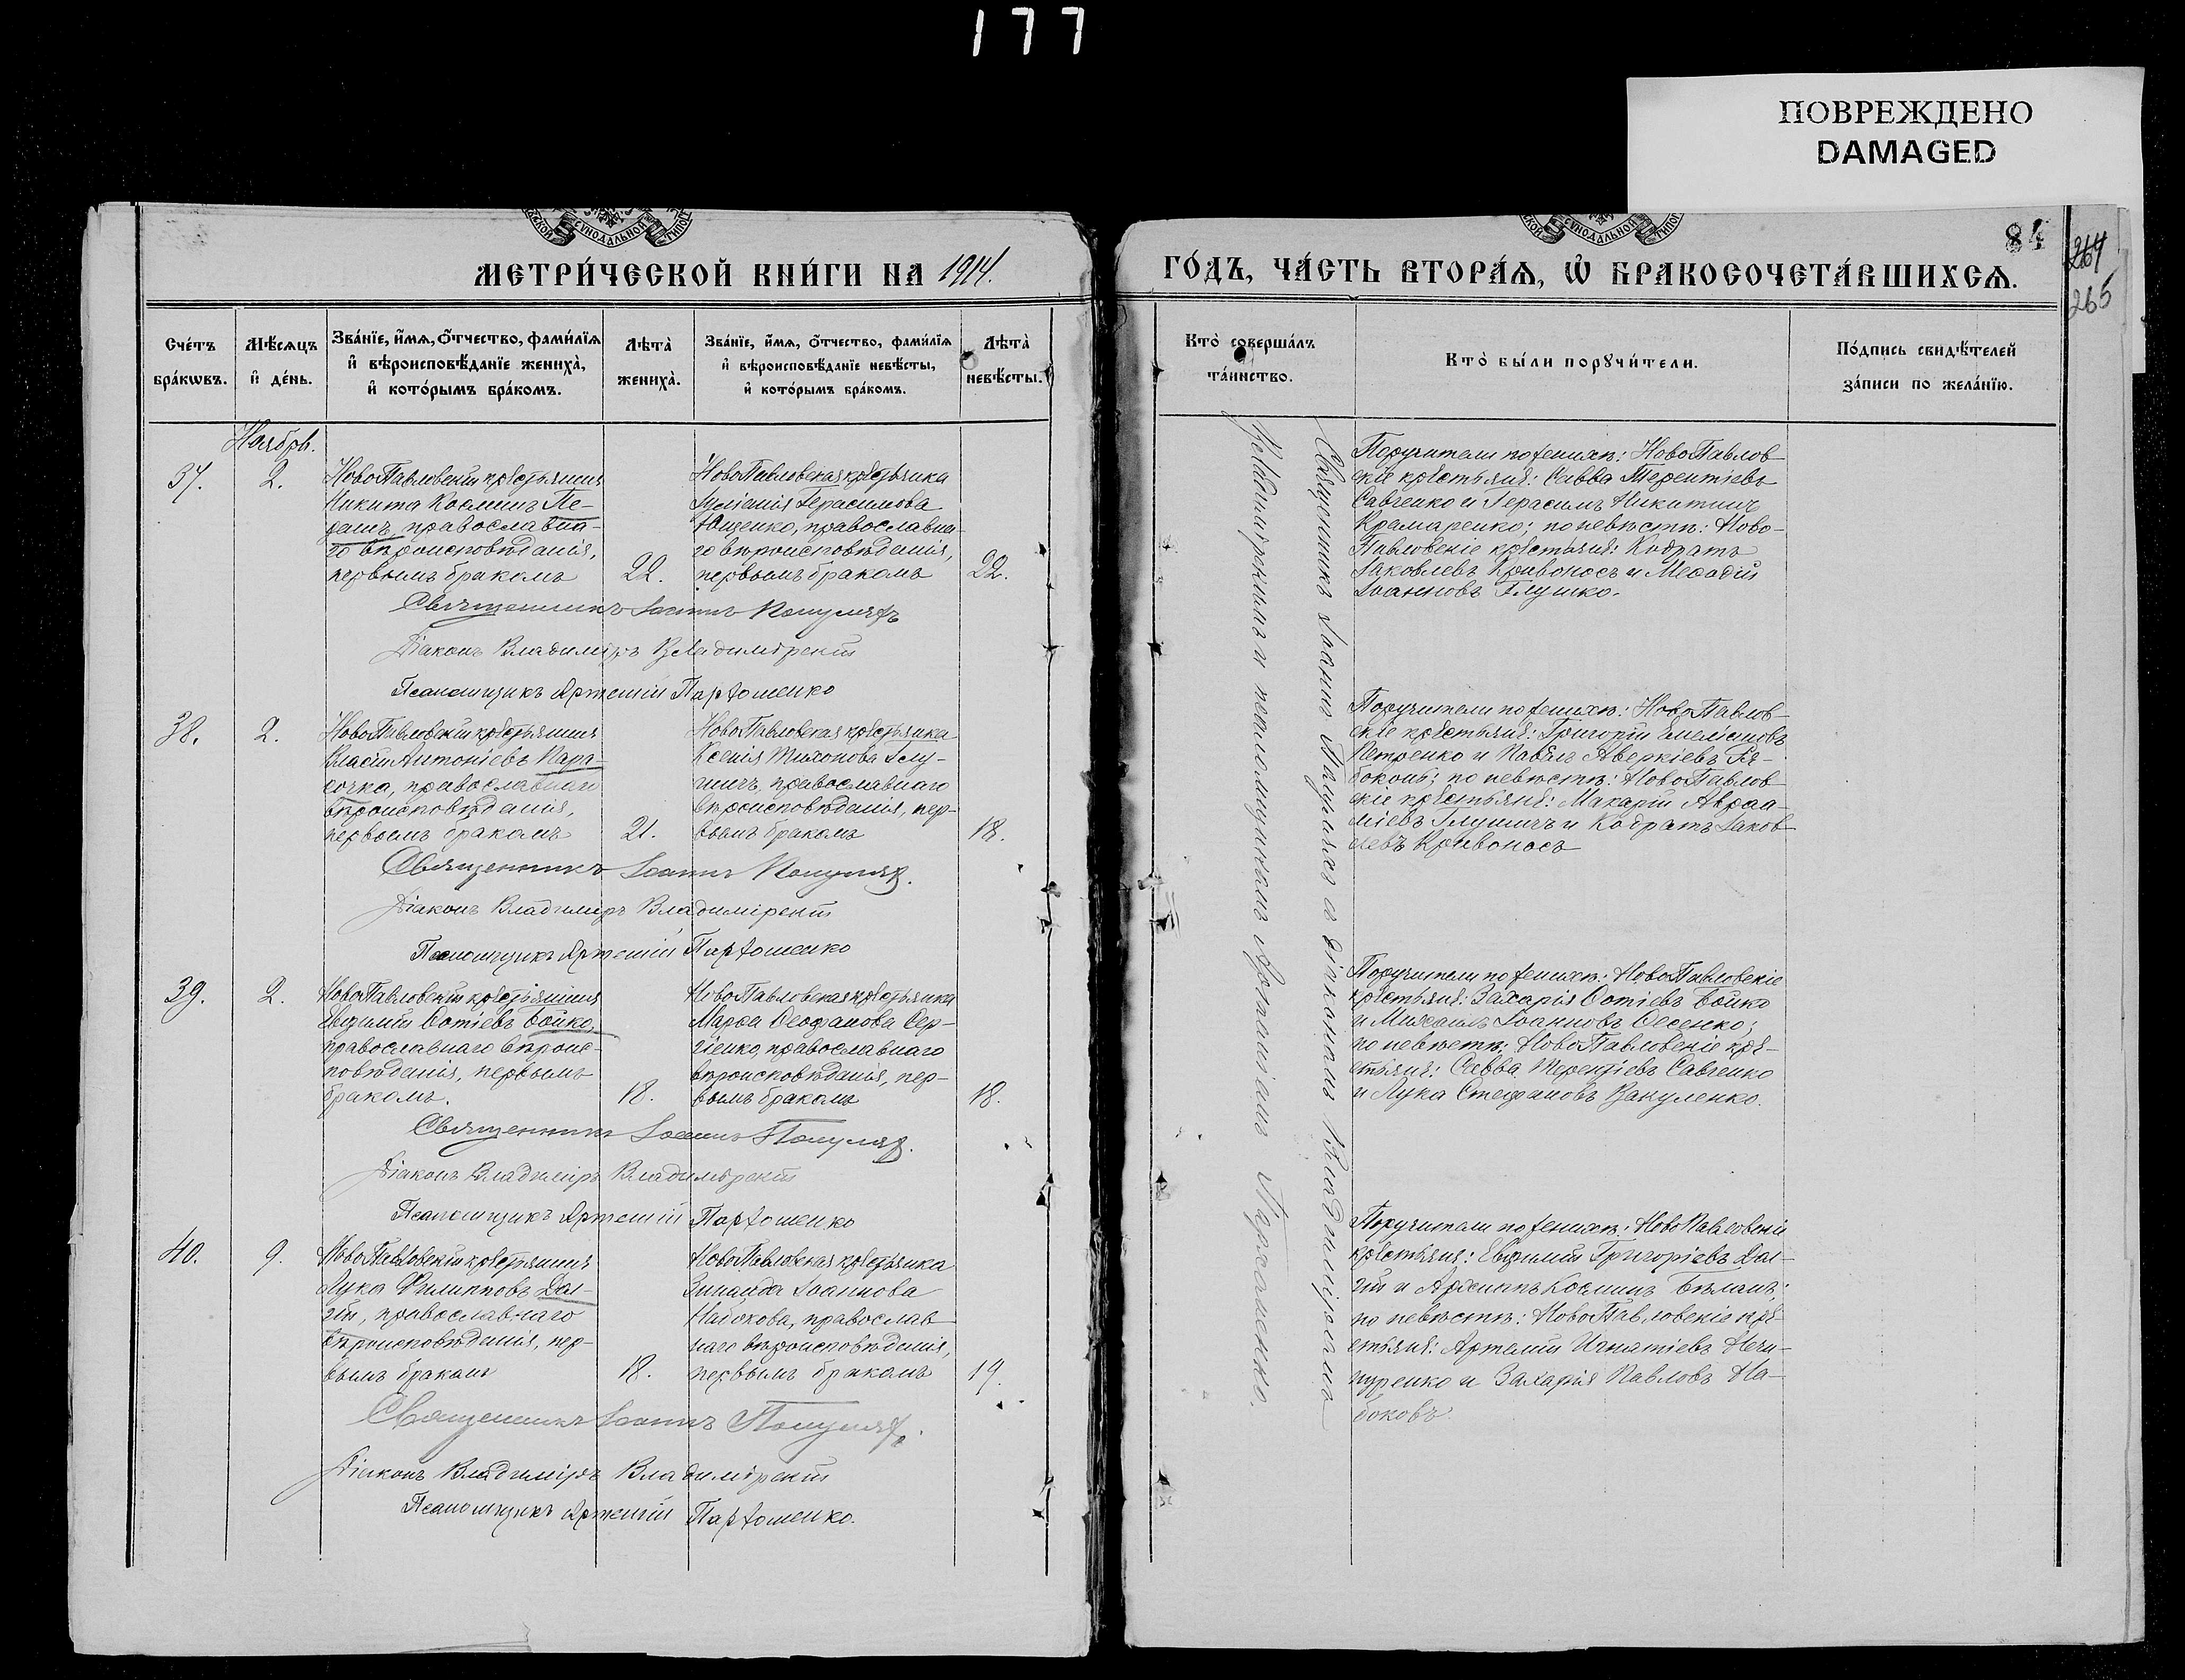 177
ПОВРЕЖДЕНО
DAMAGED
МЕТРИ́ЧЕСКОЙ КНИ́ГИ НА 1914.
ГО́ДЪ, ЧА́СТЬ ВТОРА́Ѧ, Ѽ БРАКОСОЧЕТА́ВШИХСѦ.
84
264
265
Счетъ бра́кѡвъ.
Мѣ́сѧцъ и҆ де́нь.
Зва́нїе, и҆́мѧ, ѻ҆́тчество, фами́лїѧ
и҆ вѣроисповѣ́данїе жениха̀,
и҆ кото́рымъ бра́комъ.
Лѣта̀ жениха̀.
Зва́нїе, и҆́мѧ, ѻ҆́тчество, фами́лїѧ
и҆ вѣроисповѣ́данїе невѣ́сты,
и҆ кото́рымъ бра́комъ.
Лѣта̀ невѣ́сты.
Кто̀ соверша́лъ
та́инство.
Кто̀ бы́ли порꙋчи́тели.
По́дпись свидѣ́телей
за́писи по жела́нїю.
Ноябрь.
37.
2.
НовоПавловскій крестьянинъ
Никита Косминъ Пе-
дашъ, православна-
го вѣроисповѣданія,
первымъ бракомъ
22.
НовоПавловская крестьянка
Іуліанія Герасимова
Ющенко, православна-
го вѣроисповѣданія,
первымъ бракомъ
22.
Поручители по женихѣ: НовоПавлов-
скіе крестьяне: Савва Терентіевъ
Савченко и Герасимъ Никитинъ
Крамаренко; по невѣстѣ: Ново-
Павловскіе крестьяне: Кодратъ
Іаковлевъ Кривоносъ и Меѳодій
Іоанновъ Глушко.
Священникъ Іоаннъ
Діаконъ Владимиръ Владимірскій
Псаломщикъ Артемій Пархоменко
38.
2.
НовоПавловскій крестьянинъ
Власій Антоніевъ Пара-
сочка, православнаго
вѣроисповѣданія,
первымъ бракомъ
21.
НовоПавловская крестьянка
Ксенія Тихонова Глу-
шичъ, православнаго
вѣроисповѣданія, пер-
вымъ бракомъ
18.
Поручители по женихѣ: НовоПавлов-
скіе крестьяне: Григорій Емеліановъ
Петренко и Павелъ Аверкіевъ Ря-
боконь; по невѣстѣ: НовоПавлов-
скіе крестьяне: Макарій Авраа-
міевъ Глушичъ и Кодратъ Іаков-
левъ Кривоносъ
Священникъ Іоаннъ
Діаконъ Владимиръ Владимірскій
Псаломщикъ Артемій Пархоменко
39.
2.
НовоПавловскій крестьянинъ
Евфимій Фотіевъ Бойко,
православнаго вѣроис-
повѣданія, первымъ
бракомъ.
18.
НовоПавловская крестьянка
Марѳа Ѳеофанова Сер-
гіенко, православнаго
вѣроисповѣданія, пер-
вымъ бракомъ
18.
Поручители по женихѣ: НовоПавловскіе
крестьяне: Захарія Фотіевъ Бойко
и Михаилъ Іоанновъ
по невѣстѣ: НовоПавловскіе кре-
стьяне: Савва Терентіевъ Савченко
и Лука Стефановъ Вакуленко.
Священникъ Іоаннъ
Діаконъ Владимиръ Владимірскій
Псаломщикъ Артемій Пархоменко
40.
9.
НовоПавловскій крестьянинъ
Лука Филипповъ Дол-
гій, православнаго
вѣроисповѣданія, пер-
вымъ бракомъ
18.
НовоПавловская крестьянка
Зинаида Іоаннова
православ-
наго вѣроисповѣданія,
первымъ бракомъ
19.
Поручители по женихѣ: НовоПавловскіе
крестьяне: Евфимій Григоріевъ Дол-
гій и Архипъ Косминъ Бѣланъ;
по невѣстѣ: НовоПавловскіе кре-
стьяне: Артемій Игнатіевъ Нечи-
пуренко и Захарія Павловъ На-
боковъ.
Священникъ Іоаннъ
Діаконъ Владимиръ Владимірскій
Псаломщикъ Артемій Пархоменко.
Священникъ Іоаннъ съ діакономъ Владиміромъ
Владимірскимъ и псаломщикомъ Артеміемъ Пархоменко.